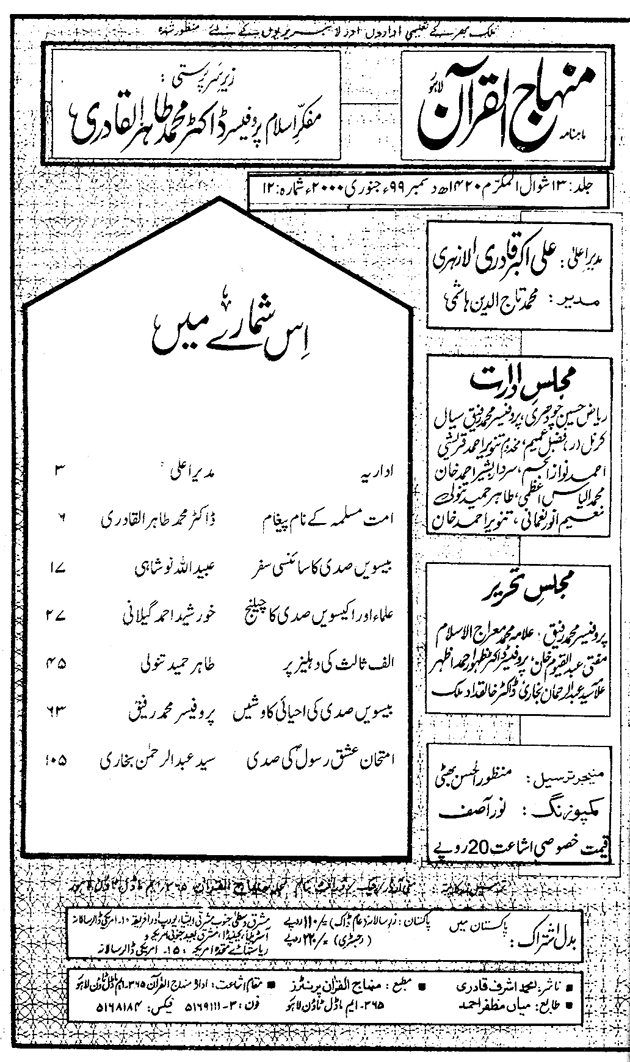 ملک بھر کے تعلیمی اداروں اور لائبریریوں کے لئے منظور شدہ
ماہنامہ منہاج القرآن لاہور
زیر سرپرستی :
مفکر اسلام پروفیسر ڈاکٹر محمد طاہر القادری
جلد : ۱۳ شوال المکرم ۱۴۲۰ھ دسمبر ۹۹ء جنوری ۲۰۰۰ء شمارہ : ۱۲
مدیر اعلیٰ : علی اکبر قادری الازہری
مدیر : محمد تاج الدین ہاشمی
مجلس ادارت
ریاض حسین چودھری، پروفیسر محمد رفیق سیال
کرنل (ر) فضل عمیم، مخدوم تنویر احمد قریشی
احمد نواز انجم، سردار بشیر احمد خان
محمد الیاس اعظمی، طاہر حمید تنولی
نعیم انور نعمانی، تنویر احمد خان
مجلس تحریر
پروفیسر محمد رفیق، علامہ محمد معراج الاسلام
مفتی عبدالقیوم خان، پروفیسر ڈاکٹر ظہور احمد اظہر
علامہ سید عبدالرحمان بخاری، ڈاکٹر خالقداد ملک
منیجر ترسیل : منظور الحسن بھٹی
کمپوزنگ : نور آصف
قیمت خصوصی اشاعت 20 روپے
اس شمارے میں
اداریہ مدیر اعلیٰ ۳
امت مسلمہ کے نام پیغام ڈاکٹر محمد طاہر القادری ۶
بیسویں صدی کا سائنسی سفر عبید اللہ نوشاہی ۱۷
علماء اور اکیسویں صدی کا چیلنج خورشید احمد گیلانی ۲۷
الف ثالث کی دہلیز پر طاہر حمید تنولی ۴۵
بیسویں صدی کی احیائی کاوشیں پروفیسر محمد رفیق ۶۳
امتحان عشق رسول کی صدی سید عبدالرحمٰن بخاری ۱۰۵
مجلہ منہاج القرآن ۳۶۵ ایم ماڈل ٹاؤن لاہور
بدل اشتراک : پاکستان میں پاکستان : زر سالانہ (عام ڈاک) =/۱۱۰ روپے
(رجسٹری) =/۲۳۰ روپے
مشرق وسطیٰ جنوب مشرقی ایشیا، یورپ اور افریقہ ۱۰۔ امریکی ڈالر سالانہ
آسٹریلیا، کینیڈا، مشرق بعید جنوبی امریکہ و
ریاستہائے متحدہ امریکہ : ۱۵۔ امریکی ڈالر سالانہ
ناشر : محمد اشرف قادری مطبع : منہاج القرآن پرنٹرز مقام اشاعت : ادارہ منہاج القرآن ۳۶۵۔ ایم ماڈل ٹاؤن لاہور
طابع : میاں مظفر احمد ۳۶۵۔ ایم ماڈل ٹاؤن لاہور فون : ۳-۵۱۶۹۱۱۱ فیکس : ۵۱۶۸۱۸۴